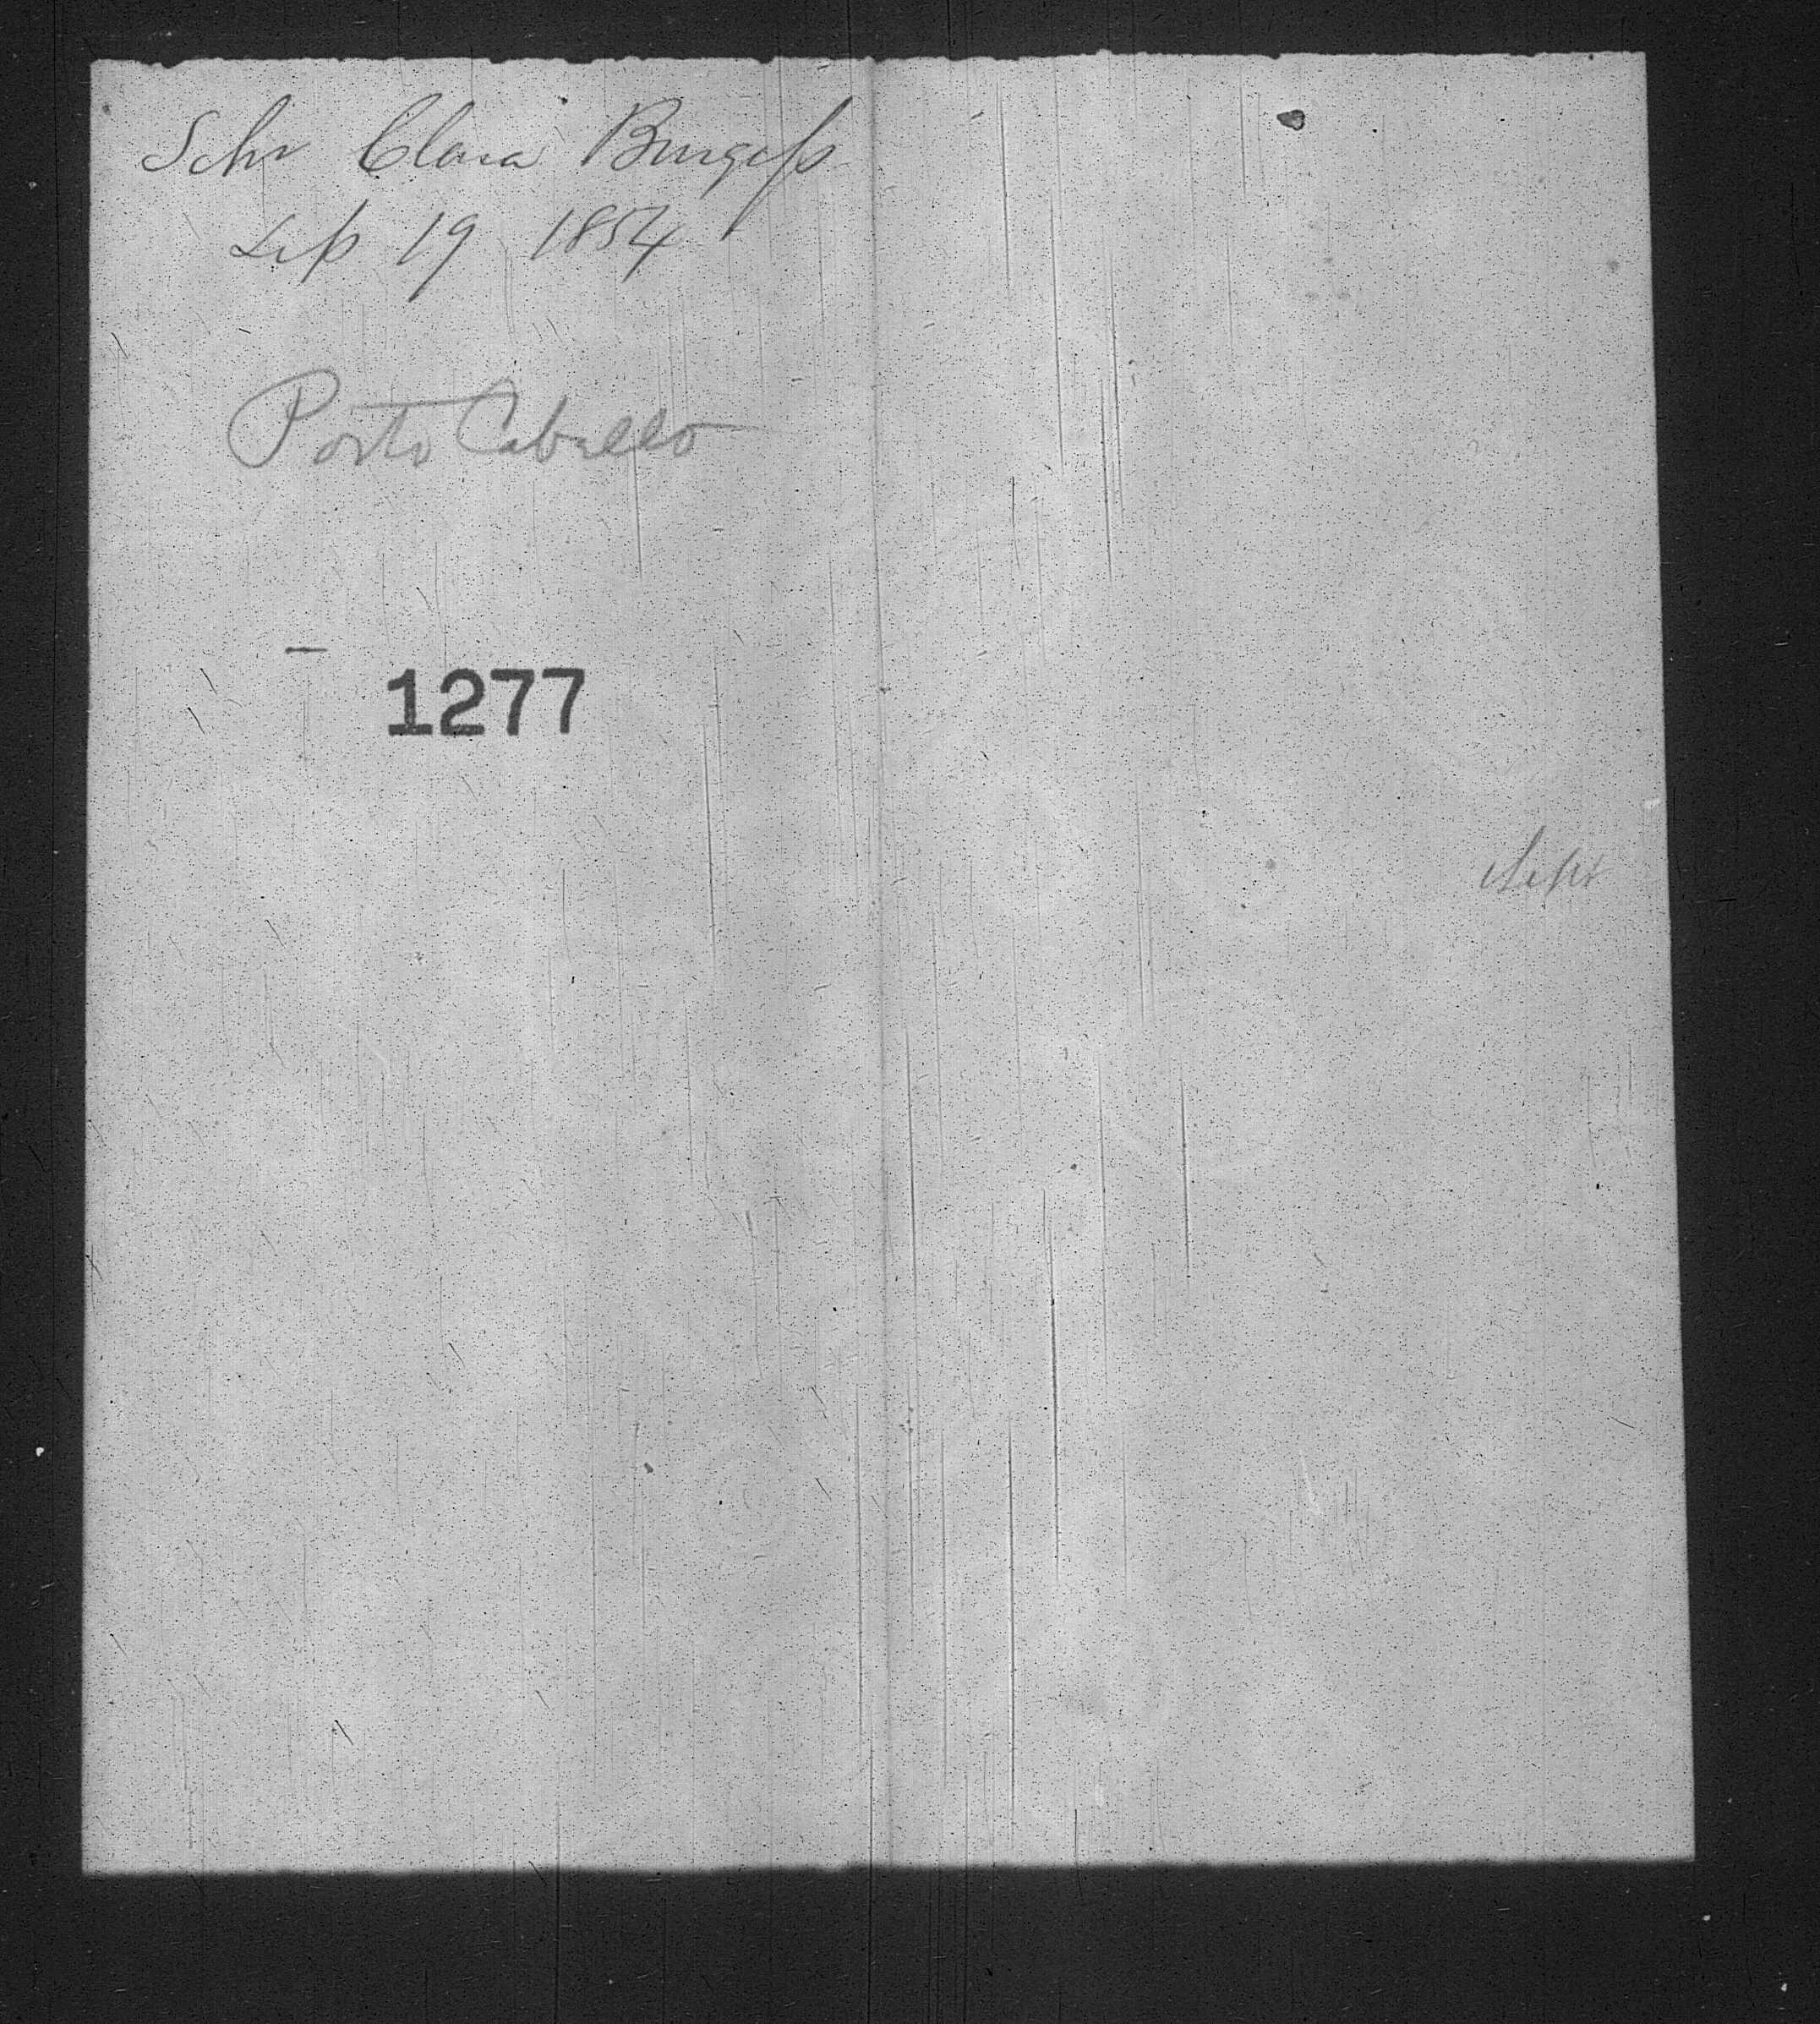 Schr Clara Burgess
Sep 19 1854
Porto Caballo
1277
Sept